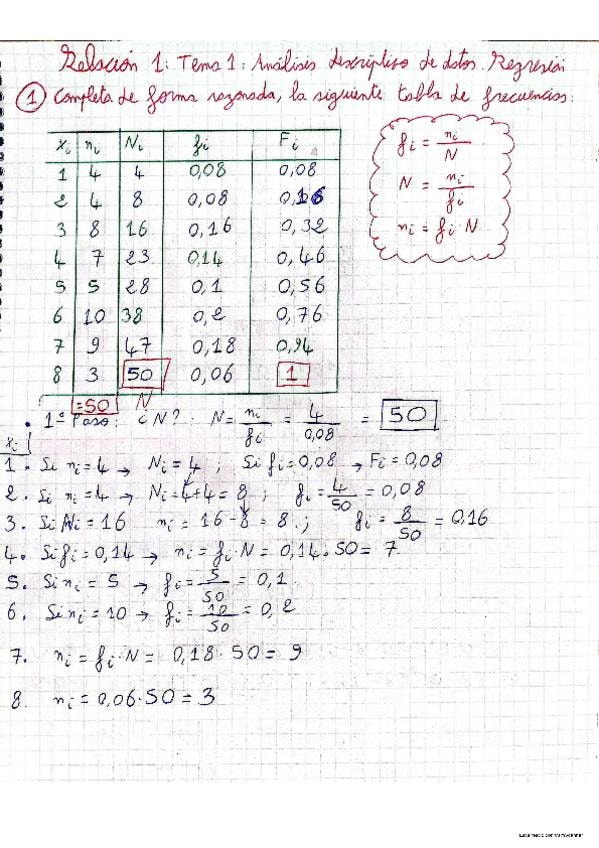 Relación 1: Tema 1: Análisis descriptivo de datos. Regresión
1 Completa de forma razonada, la siguiente tabla de frecuencias:
xi ni Ni fi Fi
1 4 4 0,08 0,08
2 4 8 0,08 0,16
3 8 16 0,16 0,32
4 7 23 0,14 0,46
5 5 28 0,1 0,56
6 10 38 0,2 0,76
7 9 47 0,18 0,94
8 3 50 0,06 1
=50 N
fi = ni/N
N = ni/fi
ni = fi · N
· 1º Paso: ¿N? · N = ni/fi = 4/0,08 = 50
xi
1. Si ni = 4 → Ni = 4 ; Si fi = 0,08 → Fi = 0,08
2. Si ni = 4 → Ni = 4+4 = 8 ; fi = 4/50 = 0,08
3. Si Ni = 16 ni = 16 - 8 = 8 . ; fi = 8/50 = 0,16
4. Si fi = 0,14 → ni = fi · N = 0,14 · 50 = 7
5. Si ni = 5 → fi = 5/50 = 0,1
6. Si ni = 10 → fi = 10/50 = 0,2
7. ni = fi · N = 0,18 · 50 = 9
8. ni = 0,06 · 50 = 3